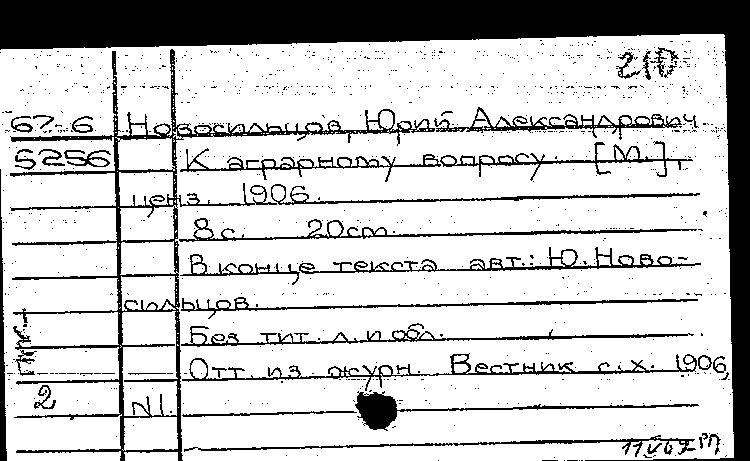 210
67-6 Новосильцов, Юрий Александрович
5256 К аграрному вопросу. [М.],
ценз. 1906.
8 с. 20 cm.
В конце текста авт.: Ю. Ново-
сильцов.
Без тит. л. и обл.
Отт. из журн. Вестник с.х. 1906,
2 N1.